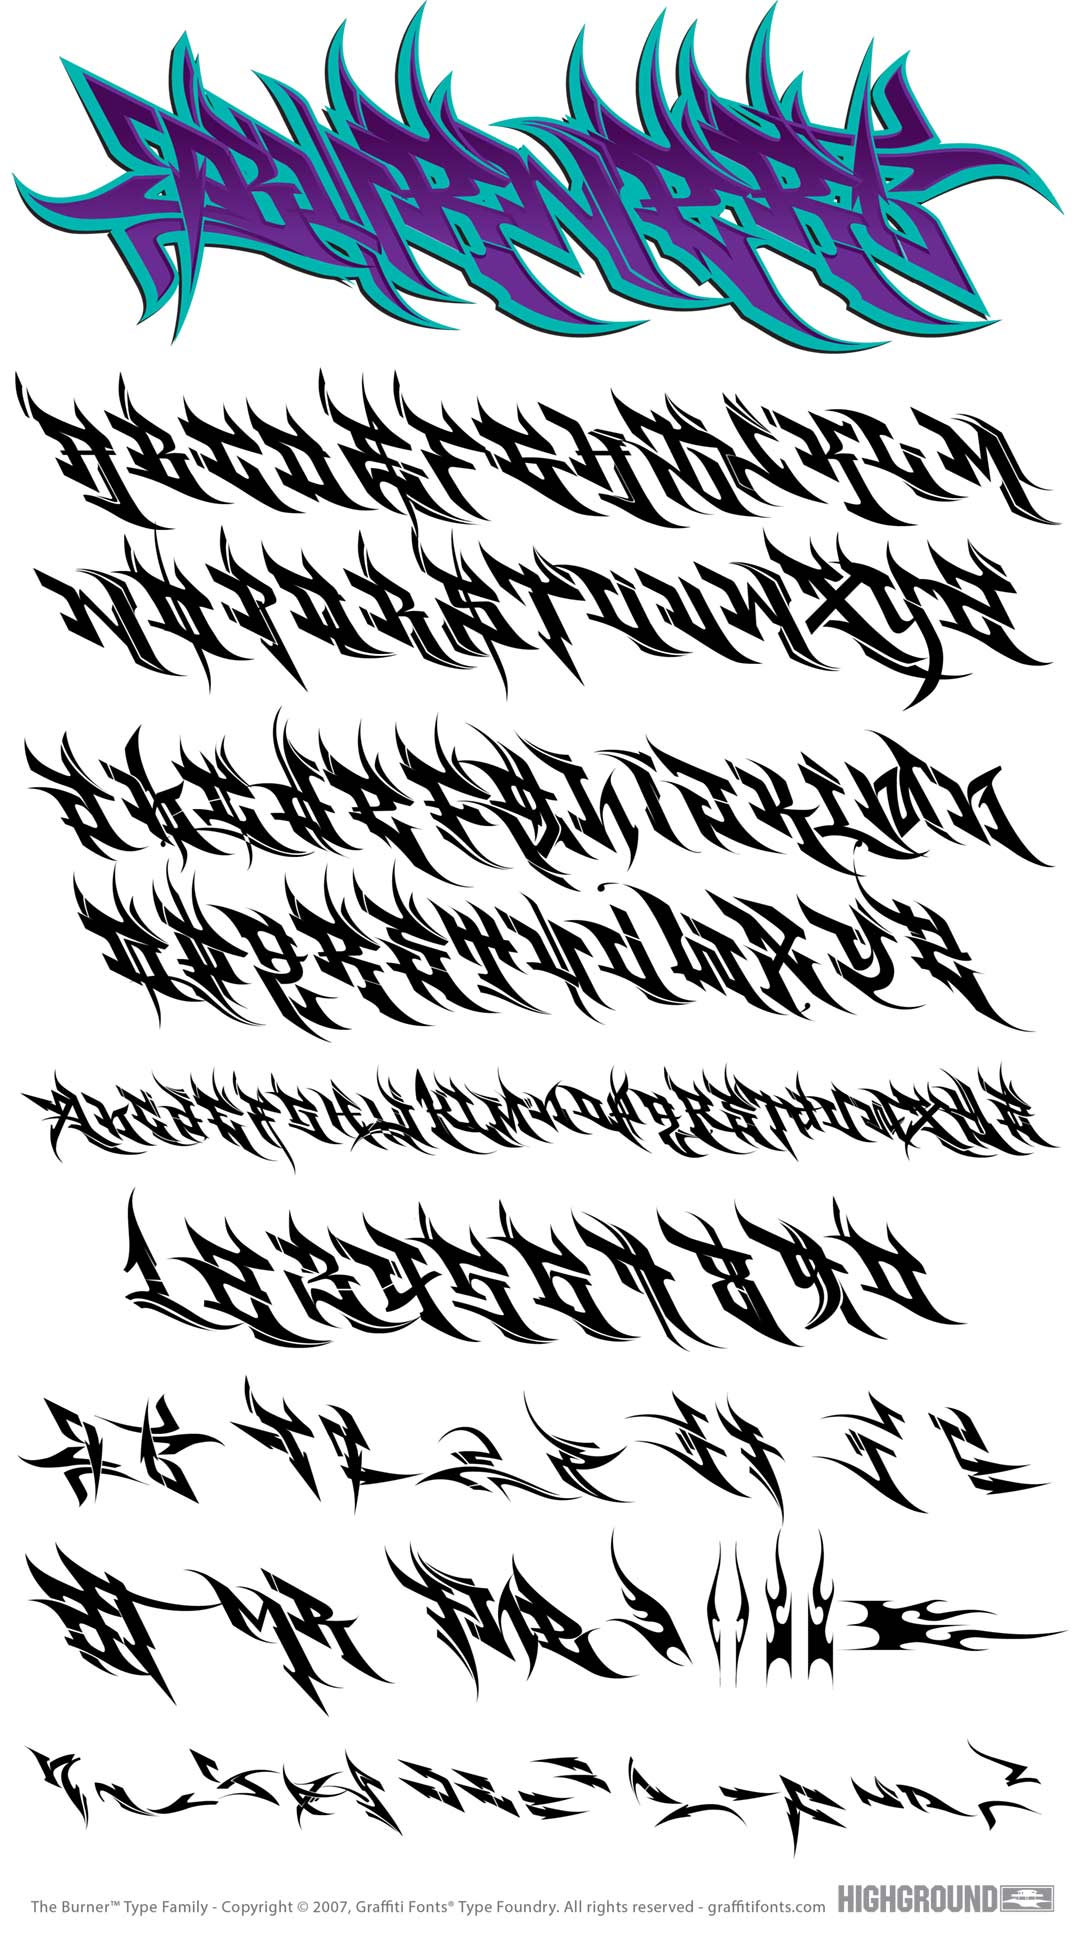 BURNER
ABCDEFGHIJKLM
NOPQRSTUVWXYZ
abcdefghijklm
nopqrstuvwxyz
ABCDEFGHIJKLMNOPQRSTUVWXYZ
1234567890
The Burner™ Type Family - Copyright © 2007, Graffiti Fonts® Type Foundry. All rights reserved - graffitifonts.com
HIGHGROUND